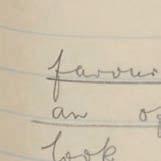 favour
an
look